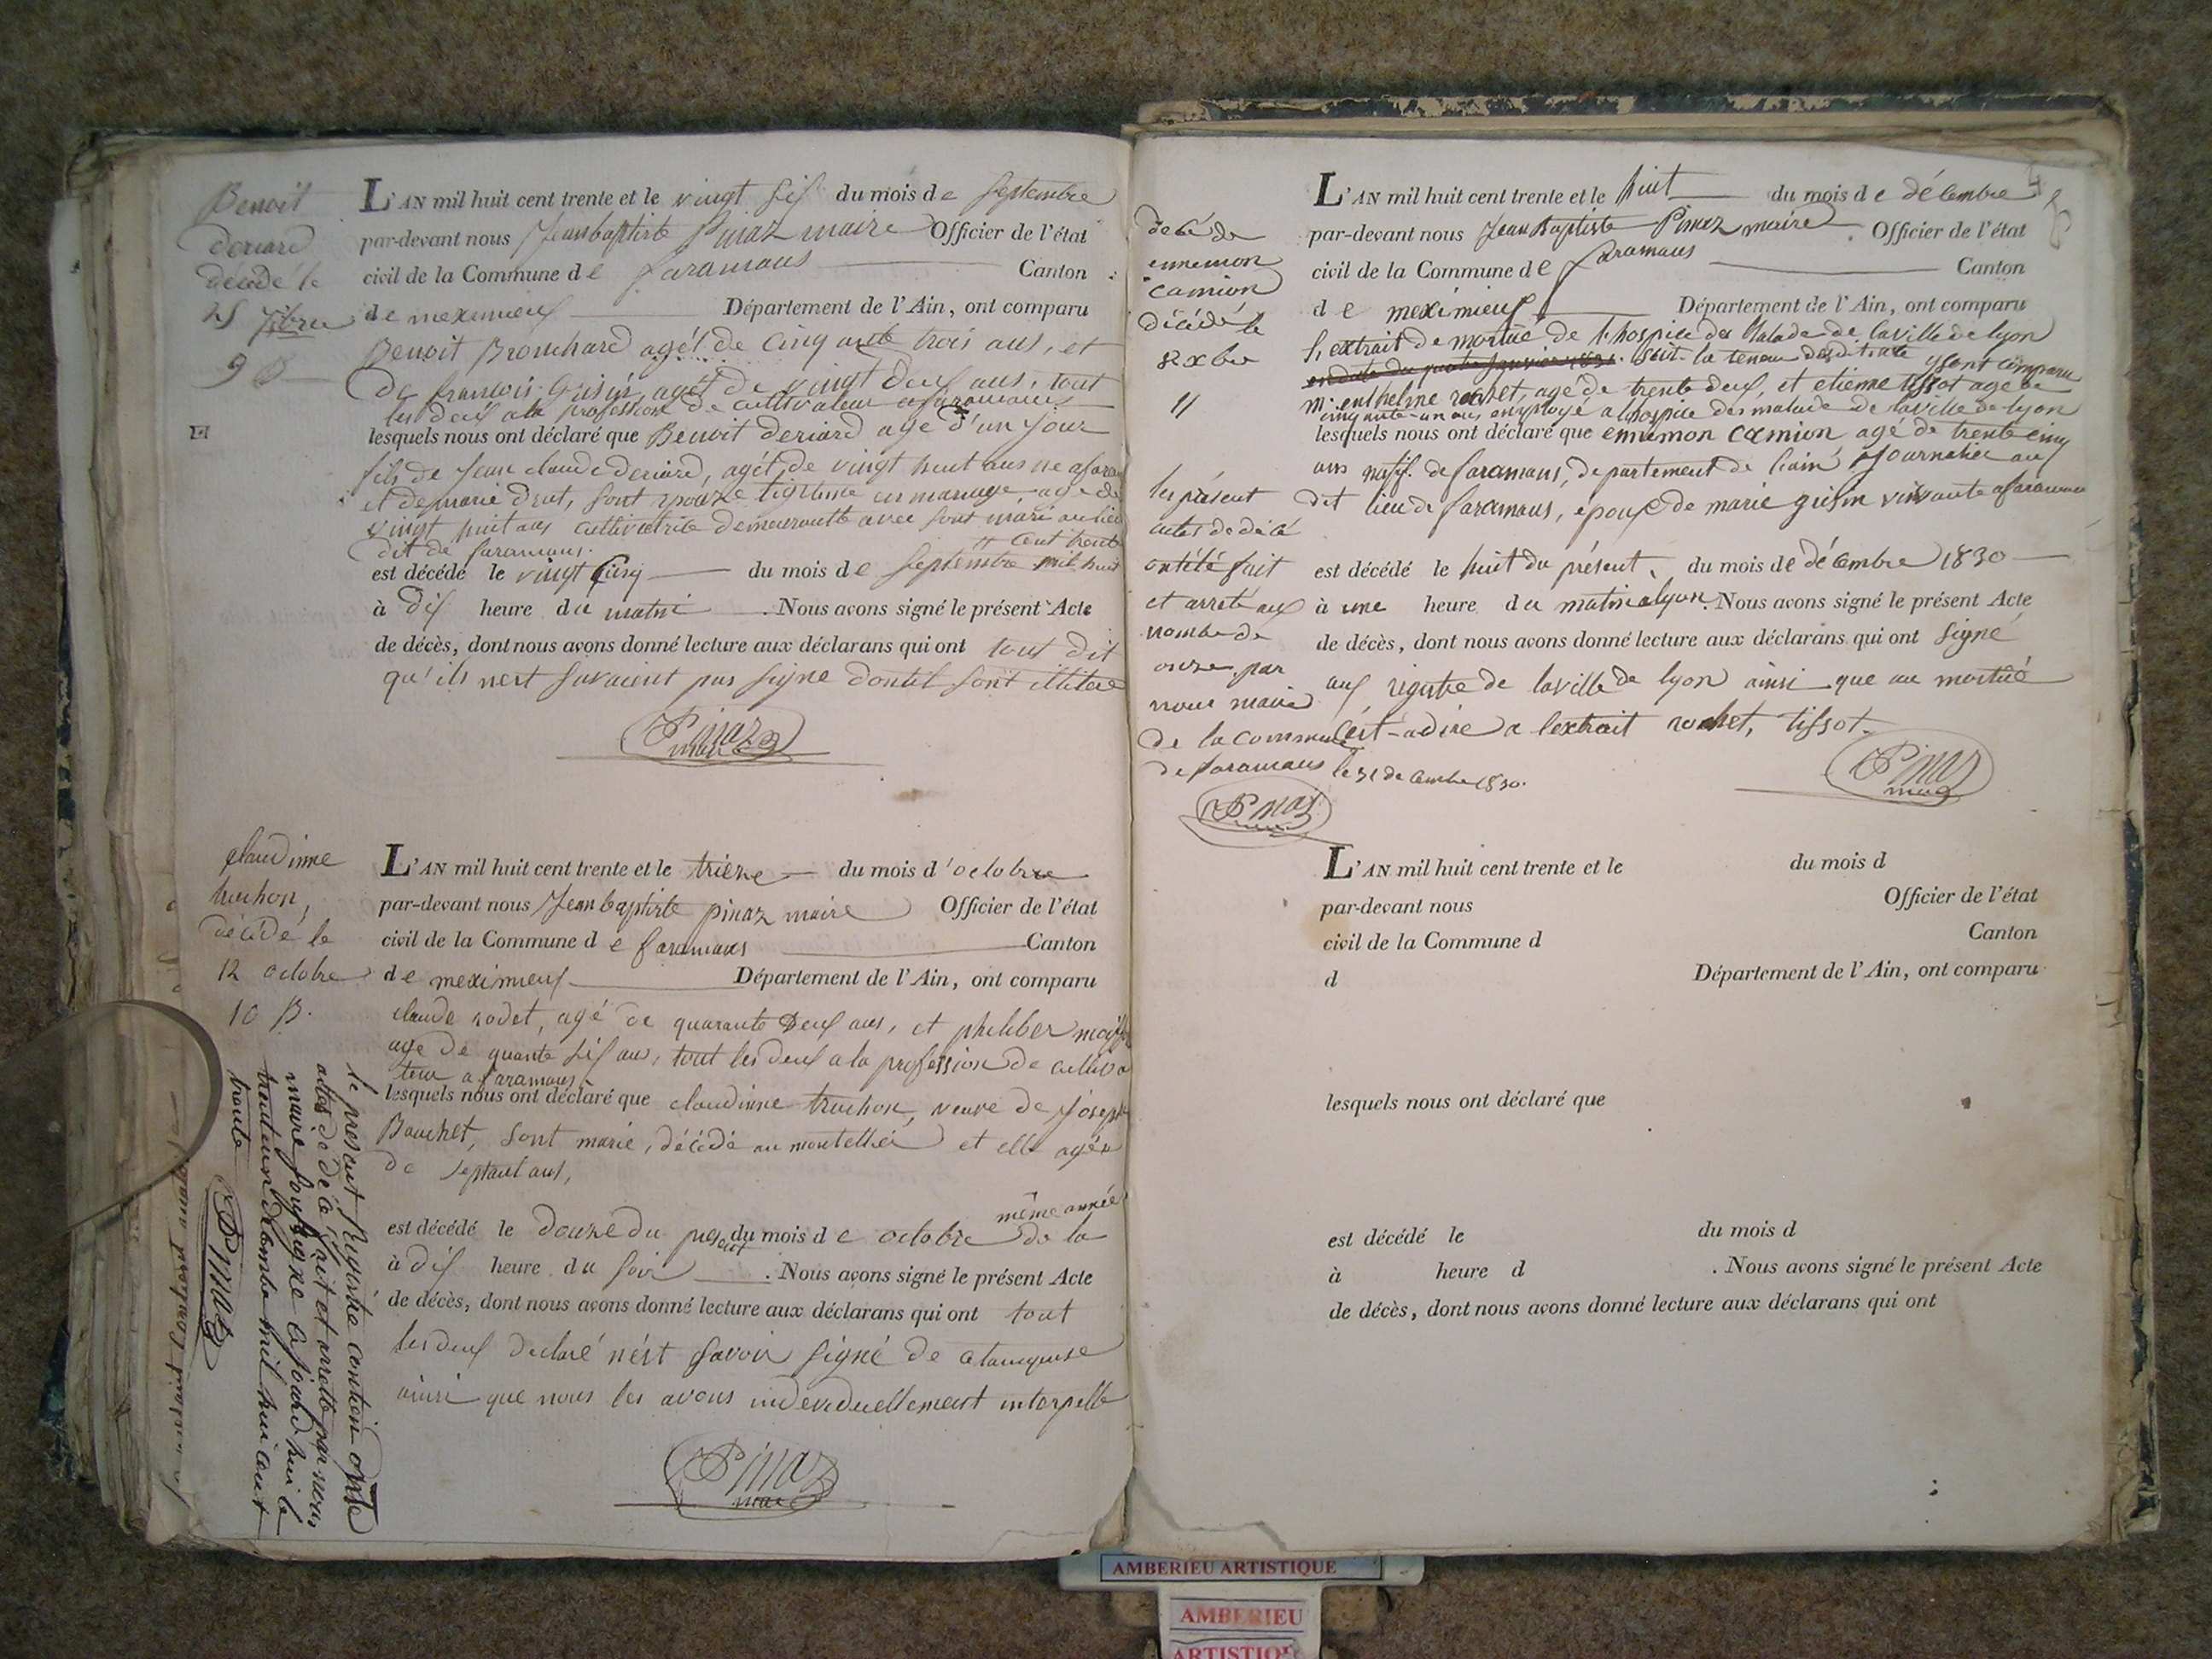 Benoit
deriard
decedé le
25 7bre
9 D
L'AN mil huit cent trente et le vingt six du mois de septembre
par-devant nous Jean baptiste Pinaz maire Officier de l'état
civil de la Commune de faramans Canton
de meximieux Département de l'Ain, ont comparu
Benoit Brouchard agét de Cinquante trois ans, et
de francois Grisin, agét de vingt deux ans, tout
les deux a la profession de cultivateur a faramans
lesquels nous ont déclaré que Benoit deriard age d'un jour
fils de Jean claude deriard, agét de vingt huit ans ne a fara
et de marie drut, sont epouze ligitime en mariage, age de
vingt huit ans cultivatrice demeurantt avec sont mari au lieu
dit de faramans.
cent trente
est décédé le vingt Cinq du mois de septembre mil huit
à dix heure du matin . Nous avons signé le présent Acte
de décès, dont nous avons donné lecture aux déclarans qui ont tout dit
qu'ils n'ert savaient pas signe dontil sont illitere
Pinaz
maire
claudinne
truchon,
décédé le
12 octobre
10 D.
L'AN mil huit cent trente et le trieze du mois d'octobre
par-devant nous Jean baptiste pinaz maire Officier de l'état
civil de la Commune de faramans Canton
de meximieux Département de l'Ain, ont comparu
claude rodet, agé de quarante deux ans, et philiber
age de quante six ans, tout les deux a la profession de culliva
teur a faramans
lesquels nous ont déclaré que claudinne truchon, veuve de Joseph
Bouchet, sont marie, décédé au montellier et elle agée
de septant ans,
même année
est décédé le douze du present du mois de octobre de la
à dix heure du soir . Nous avons signé le présent Acte
de décès, dont nous avons donné lecture aux déclarans qui ont tout
les deux declaré n'ért savoir signé de ce
ainsi que nous les avons indeveduellement interpellé
Pinaz
maire
le present Registre contien onze
attes de décé fait et arretté par nous
maire soussigne ce jourd hui le
trente un décembre mil hui cent
trente
Pinaz
L'AN mil huit cent trente et le huit du mois de décembre
par-devant nous Jean Baptiste Pinaz maire . Officier de l'état
civil de la Commune de faramans Canton
de meximieux Département de l'Ain, ont comparu
L'extrait de mortué de l'hospice des Malade de la ville de lyon
suit la teneur dudit ysont comparu
m. enthelme rochet, agé de trente deux, et etienne tissot age de
cinquante-un ans employé a l'hospice des malade de la ville de lyon
lesquels nous ont déclaré que ennemon camion agé de trente cinq
ans natif de faramans, departement de l'ain journalier au
dit lieu de faramans, epoux de marie grisin vivante a faramans
est décédé le huit du présent, du mois de décembre 1830
à une heure du matin a lyon . Nous avons signé le présent Acte
de décès, dont nous avons donné lecture aux déclarans qui ont signé
aux rigistre de la ville de lyon ainsi que au mortué
c'est-adire a l'extrait rochet, tissot.
Pinaz
maire
decé de
ennemon
camion
décédé le
8 Xbre
11
les présent
actes de décé
ont été fait
et arreté aux
nombe de
onze par
nous maire
de la commune
de faramans le 31 decembre 1830.
Pinaz
L'AN mil huit cent trente et le du mois d
par-devant nous Officier de l'état
civil de la Commune d Canton
d Département de l'Ain, ont comparu
lesquels nous ont déclaré que
est décédé le du mois d
à heure d . Nous avons signé le présent Acte
de décès, dont nous avons donné lecture aux déclarans qui ont
AMBERIEU ARTISTIQUE
AMBERIEU
ARTISTIQUE